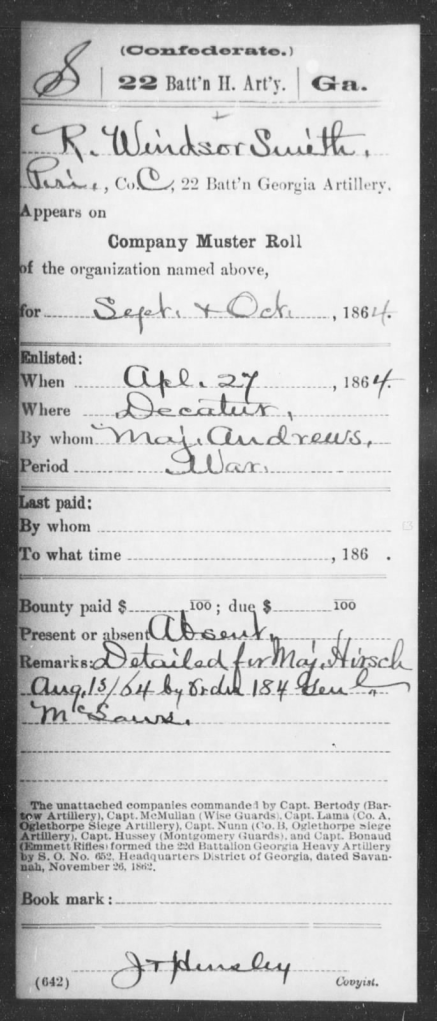 (Confederate.)
S | 22 Batt'n H. Art'y. | Ga.
R. Windsor Smith,
Priv., Co. C, 22 Batt'n Georgia Artillery.
Appears on
Company Muster Roll
of the organization named above,
for Sept. & Oct., 1864.
Enlisted:
When Apl. 27, 1864
Where Decatur,
By whom Maj. Andrews,
Period War.
Last paid:
By whom
To what time, 186 .
Bounty paid $ 100; due $ 100
Present or absent Absent,
Remarks: Detailed for Maj. Hirsch
Aug. 13/64 by Order 184 Genl
McLaws.
The unattached companies commanded by Capt. Bertody (Bar-
tow Artillery), Capt. McMullan (Wise Guards), Capt. Lama (Co. A,
Oglethorpe Siege Artillery), Capt. Nunn (Co. B, Oglethorpe Siege
Artillery), Capt. Hussey (Montgomery Guards), and Capt. Bonaud
(Emmett Rifles) formed the 22d Battalion Georgia Heavy Artillery
by S. O. No. 652, Headquarters District of Georgia, dated Savan-
nah, November 26, 1862.
Book mark:
J T Hensley
(642) Copyist.